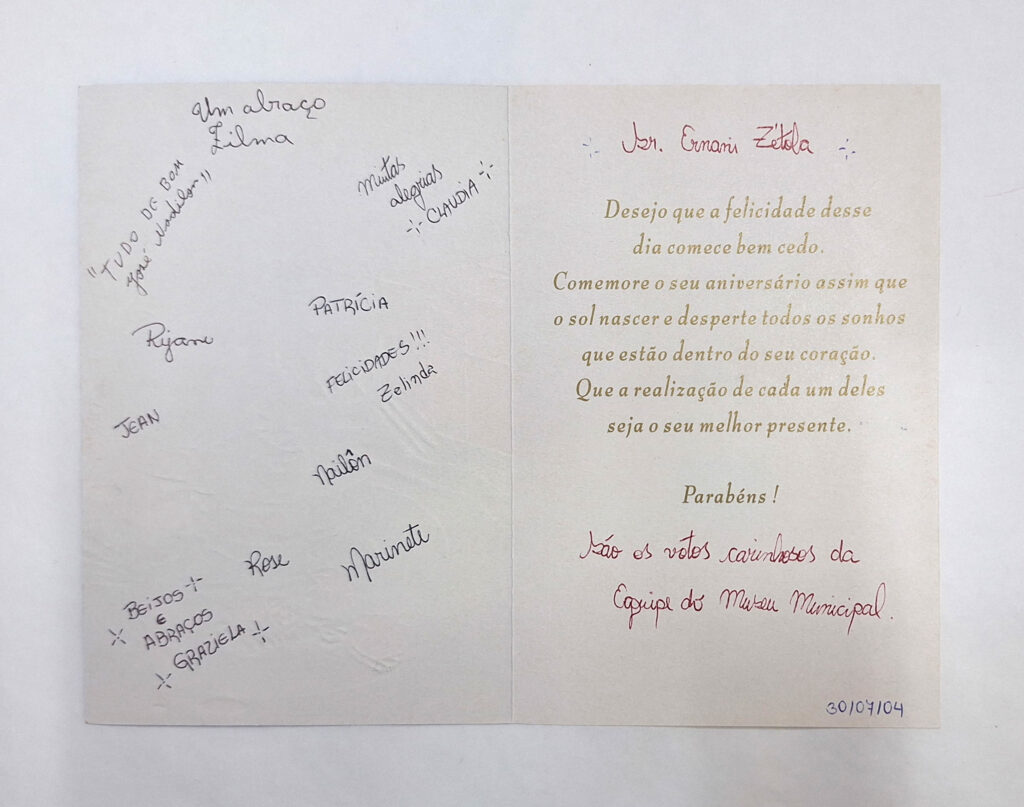 Um abraço
Zilma
"TUDO DE BOM
José Nadilor"
Muitas
alegrias
CLAUDIA
PATRÍCIA
Rijane
FELICIDADES!!!
Zelinda
JEAN
Nailôn
Rose
Marinete
BEIJOS
E
ABRAÇOS
GRAZIELA
Sr. Ernani Zétola
Desejo que a felicidade desse
dia comece bem cedo.
Comemore o seu aniversário assim que
o sol nascer e desperte todos os sonhos
que estão dentro do seu coração.
Que a realização de cada um deles
seja o seu melhor presente.
Parabéns !
São os votos carinhosos da
Equipe do Museu Municipal.
30/07/04